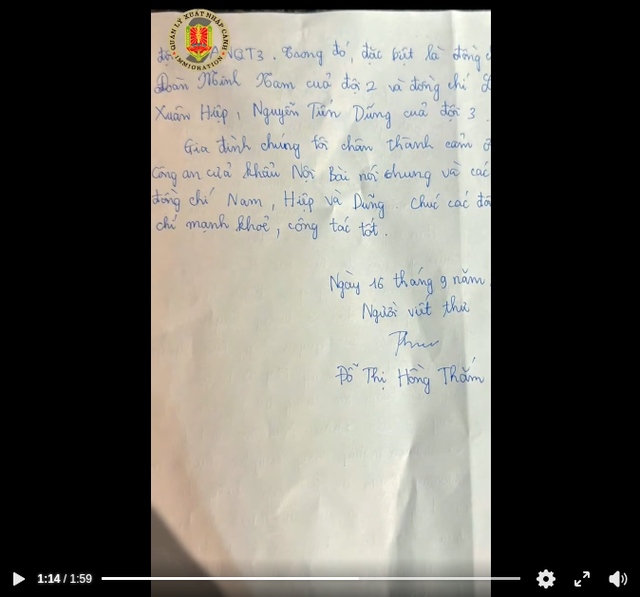 QUẢN LÝ XUẤT NHẬP CẢNH
IMMIGRATION
ANQT3. Trong đó, đặc biệt là đồng
Đoàn Minh Nam cuả đội 2 và đồng chí
Xuân Hiệp, Nguyễn Tiến Dũng cuả đội 3.
Gia đình chúng tôi chân thành cảm
Công an cửa khẩu Nội Bài nói chung và các
đồng chí Nam, Hiệp và Dũng. Chúc các
chí mạnh khoẻ, công tác tốt.
Ngày 16 tháng 9 năm
Người viết thư
Đỗ Thị Hồng Thắm
1:14 / 1:59